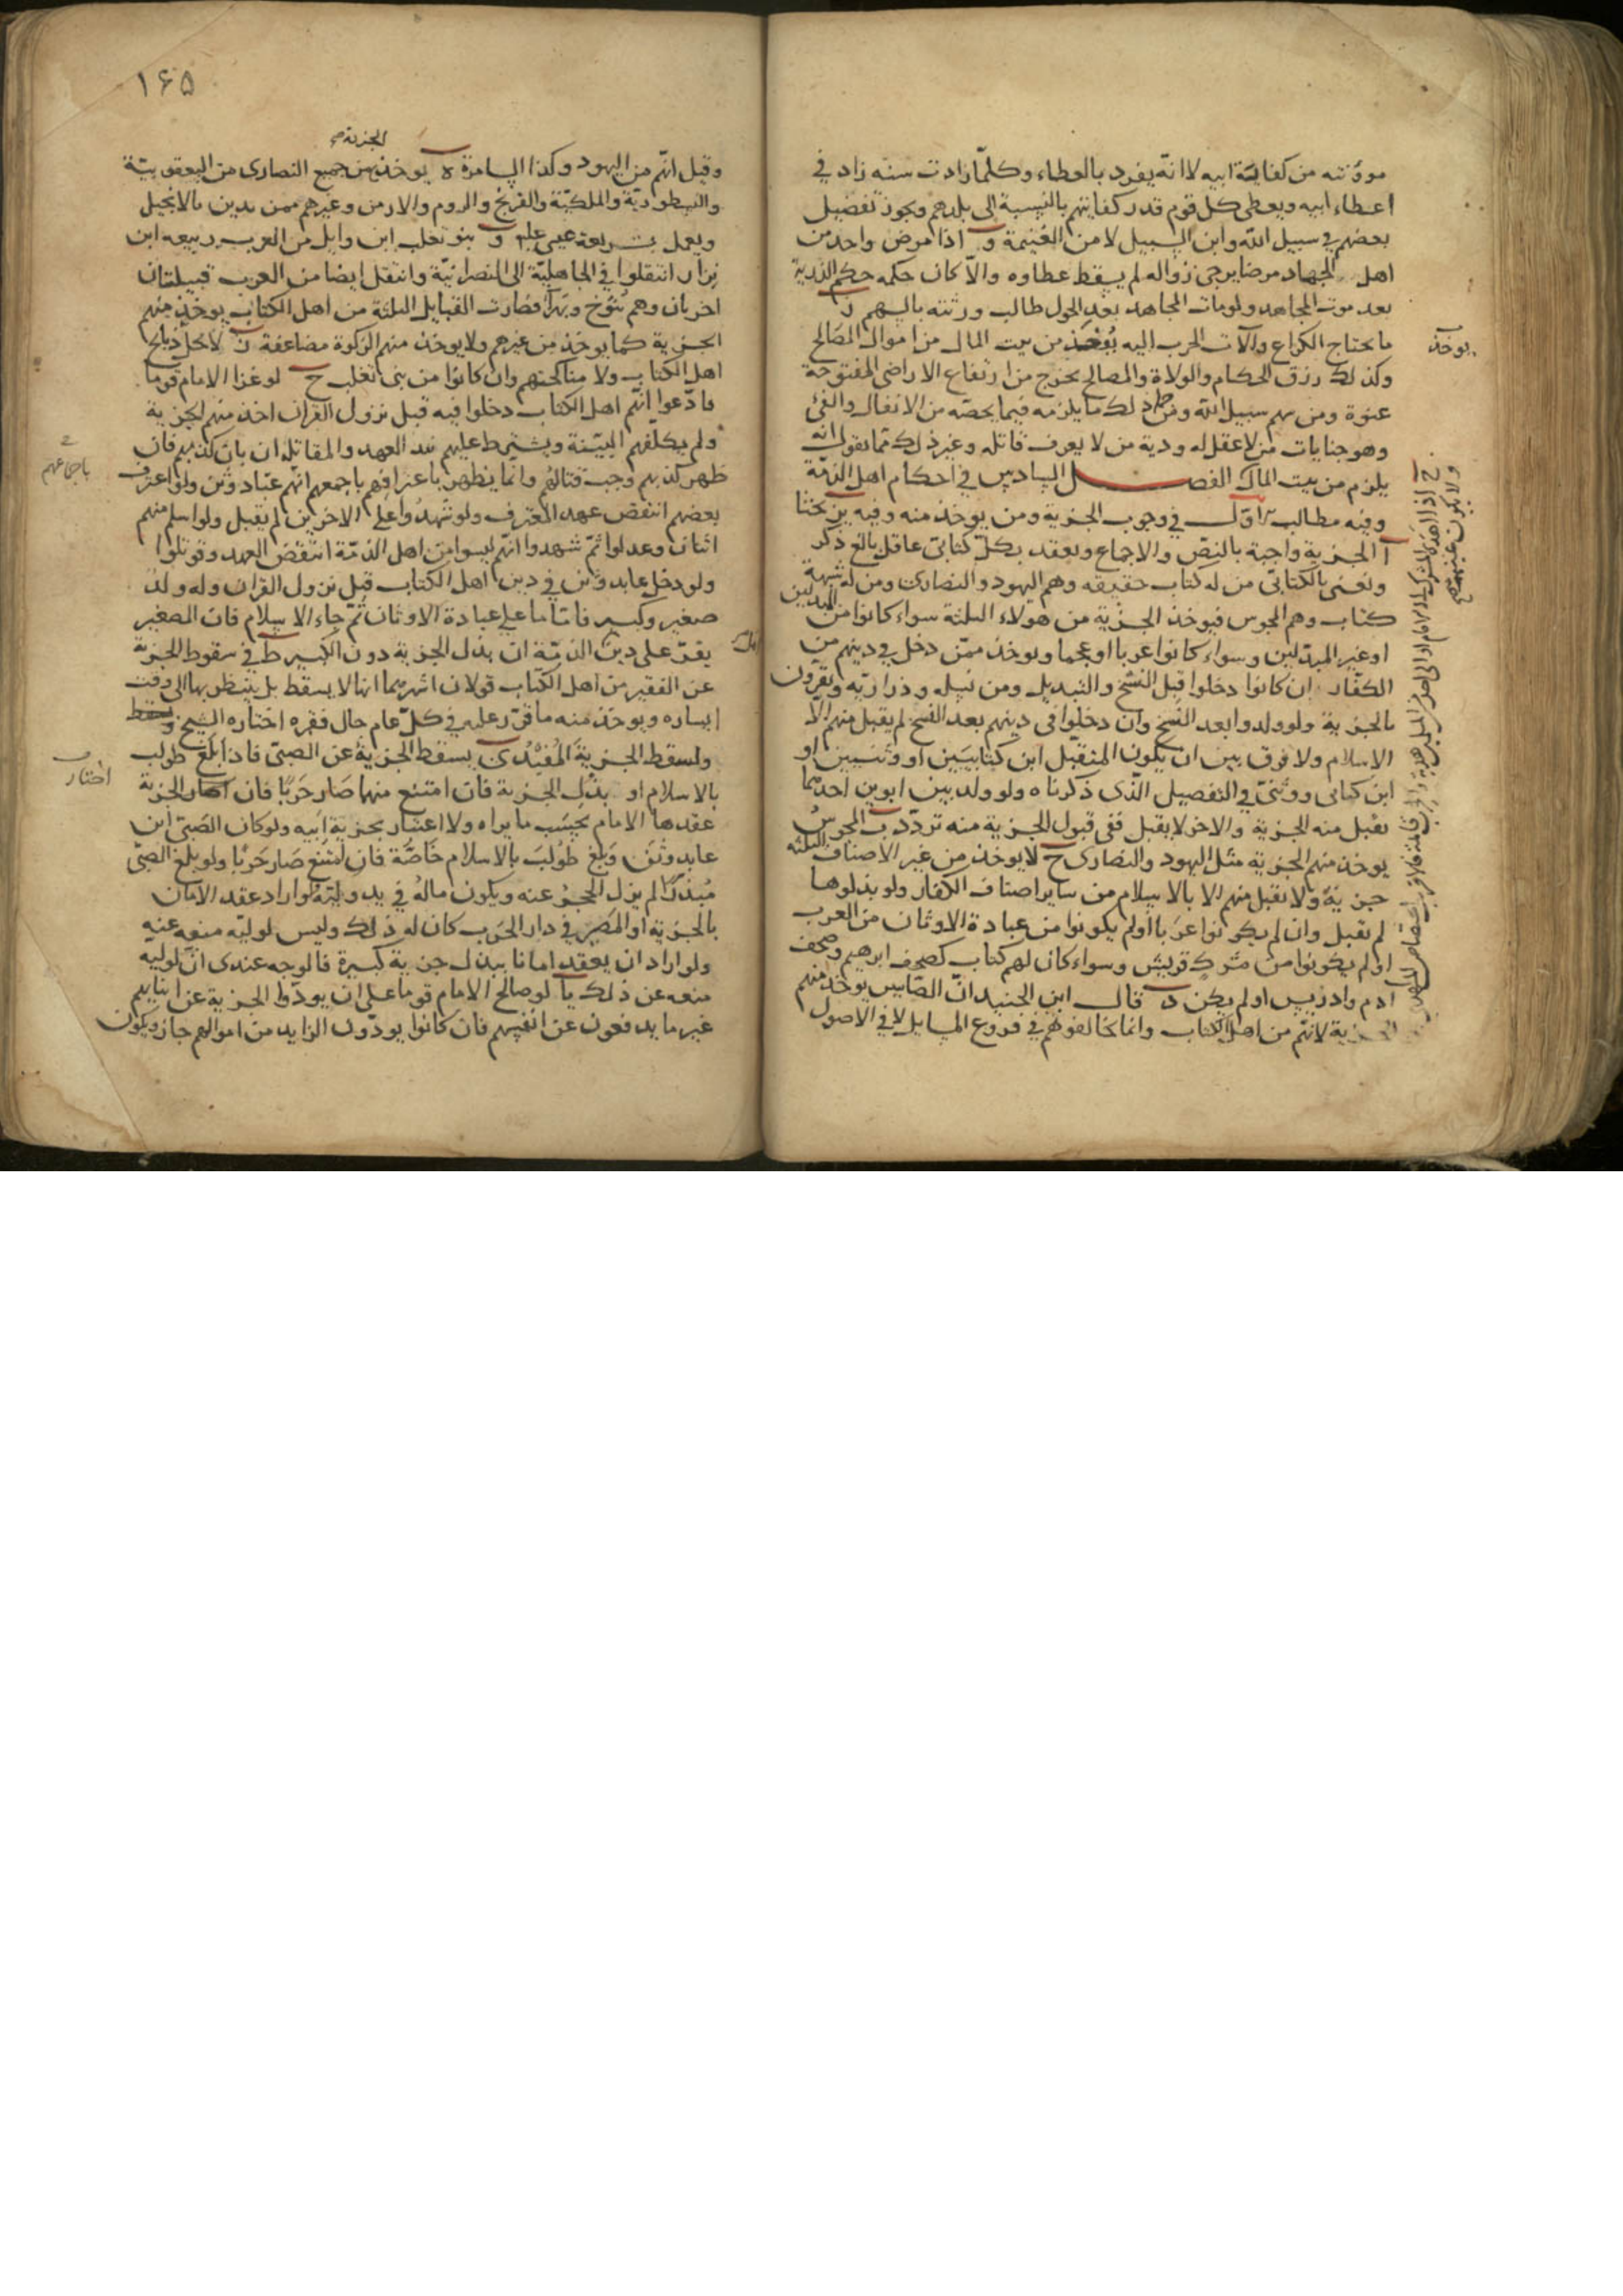 موؤنته من كفاية ابيه لا انه يفرد بالعطاء وكلما زادت سنه زاد في
اعطاء ابيه ويعطى كل قوم قدر كفايتهم بالنسبة الى بلدهم ويجوز تفضيل
بعضهم في سبيل الله وابن السبيل لا من الغنيمة و اذا مرض واحد من
اهل الجهاد مرضا يرجى زواله لم يسقط عطاوه والا كان حكمه حكم الذرية
بعد موت المجاهد ولو مات المجاهد بعد الحول طالب ورثته بالسهم ز
ما يحتاج الكراع وآلات الحرب اليه يوخذ من بيت المال من اموال المصالح
يوخذ
وكذلك رزق الحكام والولاة والمصالح يخرج من ارتفاع الاراضى المفتوحة
عنوة ومن سهم سبيل الله ومن ذلك ما يلزمه فيما يخصه من الانفال والفئ
وهو جنايات من لا عقل له ودية من لا يعرف قاتله وغير ذلك مما نقول انه
يلزم من بيت المال الفصل السادس في احكام اهل الذمة
وفيه مطالب آ الاول في وجوب الجزية ومن يوخذ منه وفيه يز بحثا
آ الجزية واجبة بالنص والاجماع ويعقد بكل كتابى عاقل بالغ ذكر
ونعنى بالكتابى من له كتاب حقيقه وهم اليهود والنصارى ومن له شبهة
كتاب وهم المجوس فيوخذ الجزية من هولاء الثلثة سواء كانوا من المبدلين
او غير المبدلين وسواء كانوا عربا او عجما ويوخذ ممن دخل في دينهم من
الكفار ان كانوا دخلوا قبل النسخ والتبديل ومن نسله وذراريه ويقرون
بالجزية ولو ولدوا بعد النسخ وان دخلوا في دينهم بعد النسخ لم يقبل منهم الا
الاسلام ولا فرق بين ان يكون المنتقل ابن كتابيين او وثنيين او
ابن كتابى ووثنى في التفصيل الذى ذكرناه ولو ولد بين ابوين احدهما
يقبل منه الجزية والاخر لا يقبل ففى قبول الجزية منه تردد ب المجوس
يوخذ منهم الجزية مثل اليهود والنصارى ج لا يوخذ من غير الاصناف الثلثه
جزية ولا يقبل منهم الا بالاسلام من ساير اصناف الكفار ولو بذلوها
لم يقبل وان لم يكونوا عربا او لم يكونوا من عبادة الاوثان من العرب
او لم يكونوا من مشرك قريش وسواء كان لهم كتاب كصحف ابرهيم وصحف
ادم وادريس او لم يكن د قال ابن الجنيد ان الصابيين يوخذ منهم
الجزية لانهم من اهل الكتاب وانما يخالفونهم في فروع المسايل لا في الاصول
١٦٥
الجزية
وقيل انهم من اليهود وكذا السامرة ه يوخذ من جميع النصارى من اليعقوبية
والنسطورية والملكية والفرنج والروم والارمن وغيرهم ممن يدين بالانجيل
ويعمل بشريعة عيسى علم و بنو تغلب ابن وايل من العرب ربيعه ابن
نزار انتقلوا في الجاهلية الى النصرانية وانتقل ايضا من العرب قبيلتان
اخريان وهم تنوخ وبهرآ فصارت القبايل الثلثة من اهل الكتاب يوخذ منهم
الجزية كما يوخذ من غيرهم ولا يوخذ منهم الزكوة مضاعفة ز لا تحل ذبايح
اهل الكتاب ولا مناكحتهم وان كانوا من بنى تغلب ح لو غزا الامام قوما
فادعوا انهم اهل الكتاب دخلوا فيه قبل نزول القران اخذ منهم الجزية
ولم يكلفهم البينة ويشترط عليهم نبذ العهد والمقاتله ان بان كذبهم فان
ظهر كذبهم وجب قتالهم وانما يظهر باعترافهم باجمعهم انهم عباد وثن ولو اعترف
باجماعهم
بعضهم انتقض عهد المعترف ولو شهدوا على الاخرين لم يقبل ولو اسلم منهم
اثنان وعدلوا ثم شهدوا انهم ليسوا من اهل الذمة انتقض العهد وقوتلوا
ولو دخل عابد وثن في دين اهل الكتاب قبل نزول القران وله ولد
صغير وكبير فاقاما على عبادة الاوثان ثم جاء الاسلام فان الصغير
يقر على دين الذمة ان بذل الجزية دون الكبير ط في سقوط الجزية
عن الفقير من اهل الكتاب قولان اشهرهما انها لا يسقط بل ينتظر بها الى وقت
ايساره ويوخذ منه ما قرر عليه في كل عام حال فقره اختاره الشيخ
ولسقط الجزية المفيد ى يسقط الجزية عن الصبى فاذا بلغ طولب
بالاسلام او بذل الجزية فان امتنع منهما صار حربيا فان اختار الجزية
اختار
عقدها الامام بحسب ما يراه ولا اعتبار بجزية ابيه ولو كان الصبى ابن
عابد وثن وبلغ طولب بالاسلام خاصة فان امتنع صار حربيا ولو بلغ الصبى
مبذرا لم يزل الحجر عنه ويكون ماله في يد وليه ولو اراد عقد الامان
بالجزية او المصير في دار الحرب كان له ذلك وليس لوليه منعه عنه
ولو اراد ان يعقد امانا ببذل جزية كبيرة فالوجه عندى ان لوليه
منعه عن ذلك يا لو صالح الامام قوما على ان يودوا الجزية عن ابنايهم
غير ما يدفعون عن انفسهم فان كانوا يودون الزايد من اموالهم جاز ويكون